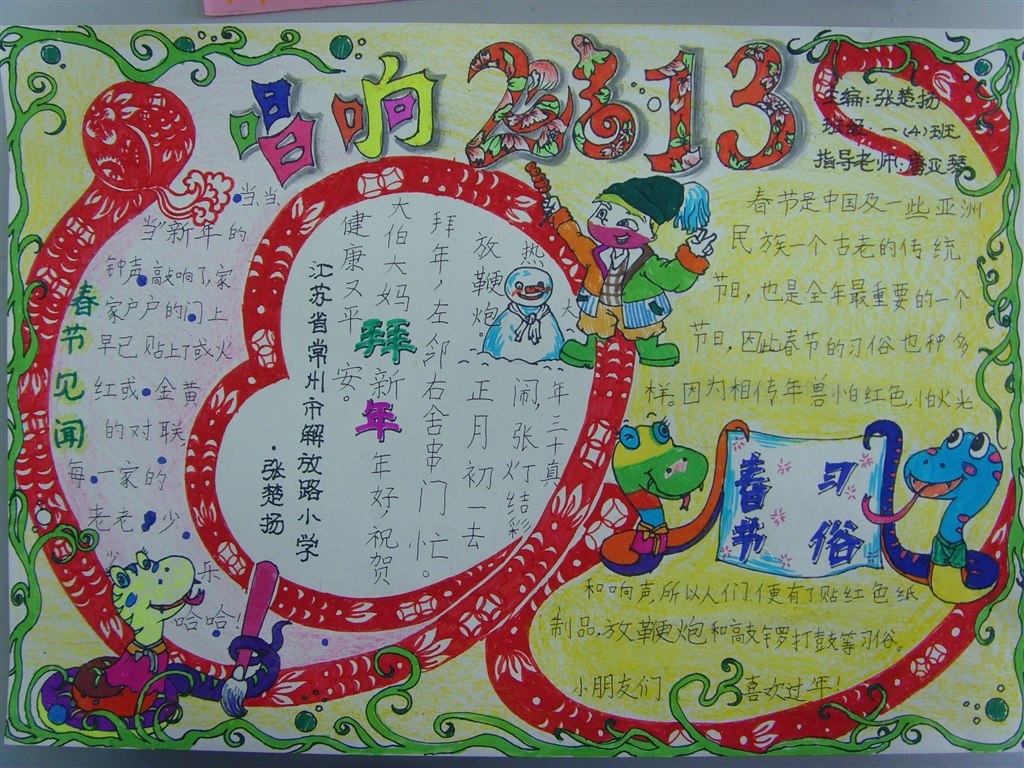 唱响2013
主编:张楚扬
班级:一(4)班
指导老师:亚琴
春节见闻
当当
当"新年的
钟声敲响了,家
家户户的门上
早已贴上了或火
红或金黄
的对联
每一家的
老老少
少
乐
哈哈!
拜新年
年三十真
热
闹,张灯结彩
放鞭炮。
正月初一去
拜年,左邻右舍串门忙。
大伯大妈
年好,祝贺
健康又平安。
江苏省常州市解放路小学
张楚扬
春节是中国及一些亚洲
民族一个古老的传统
节日,也是全年最重要的一个
节日,因此春节的习俗也种多
样。因为相传年兽怕红色,怕火光
春节
习俗
和响声,所以人们便有了贴红色纸
制品,放鞭炮和敲锣打鼓等习俗。
小朋友们
喜欢过年!